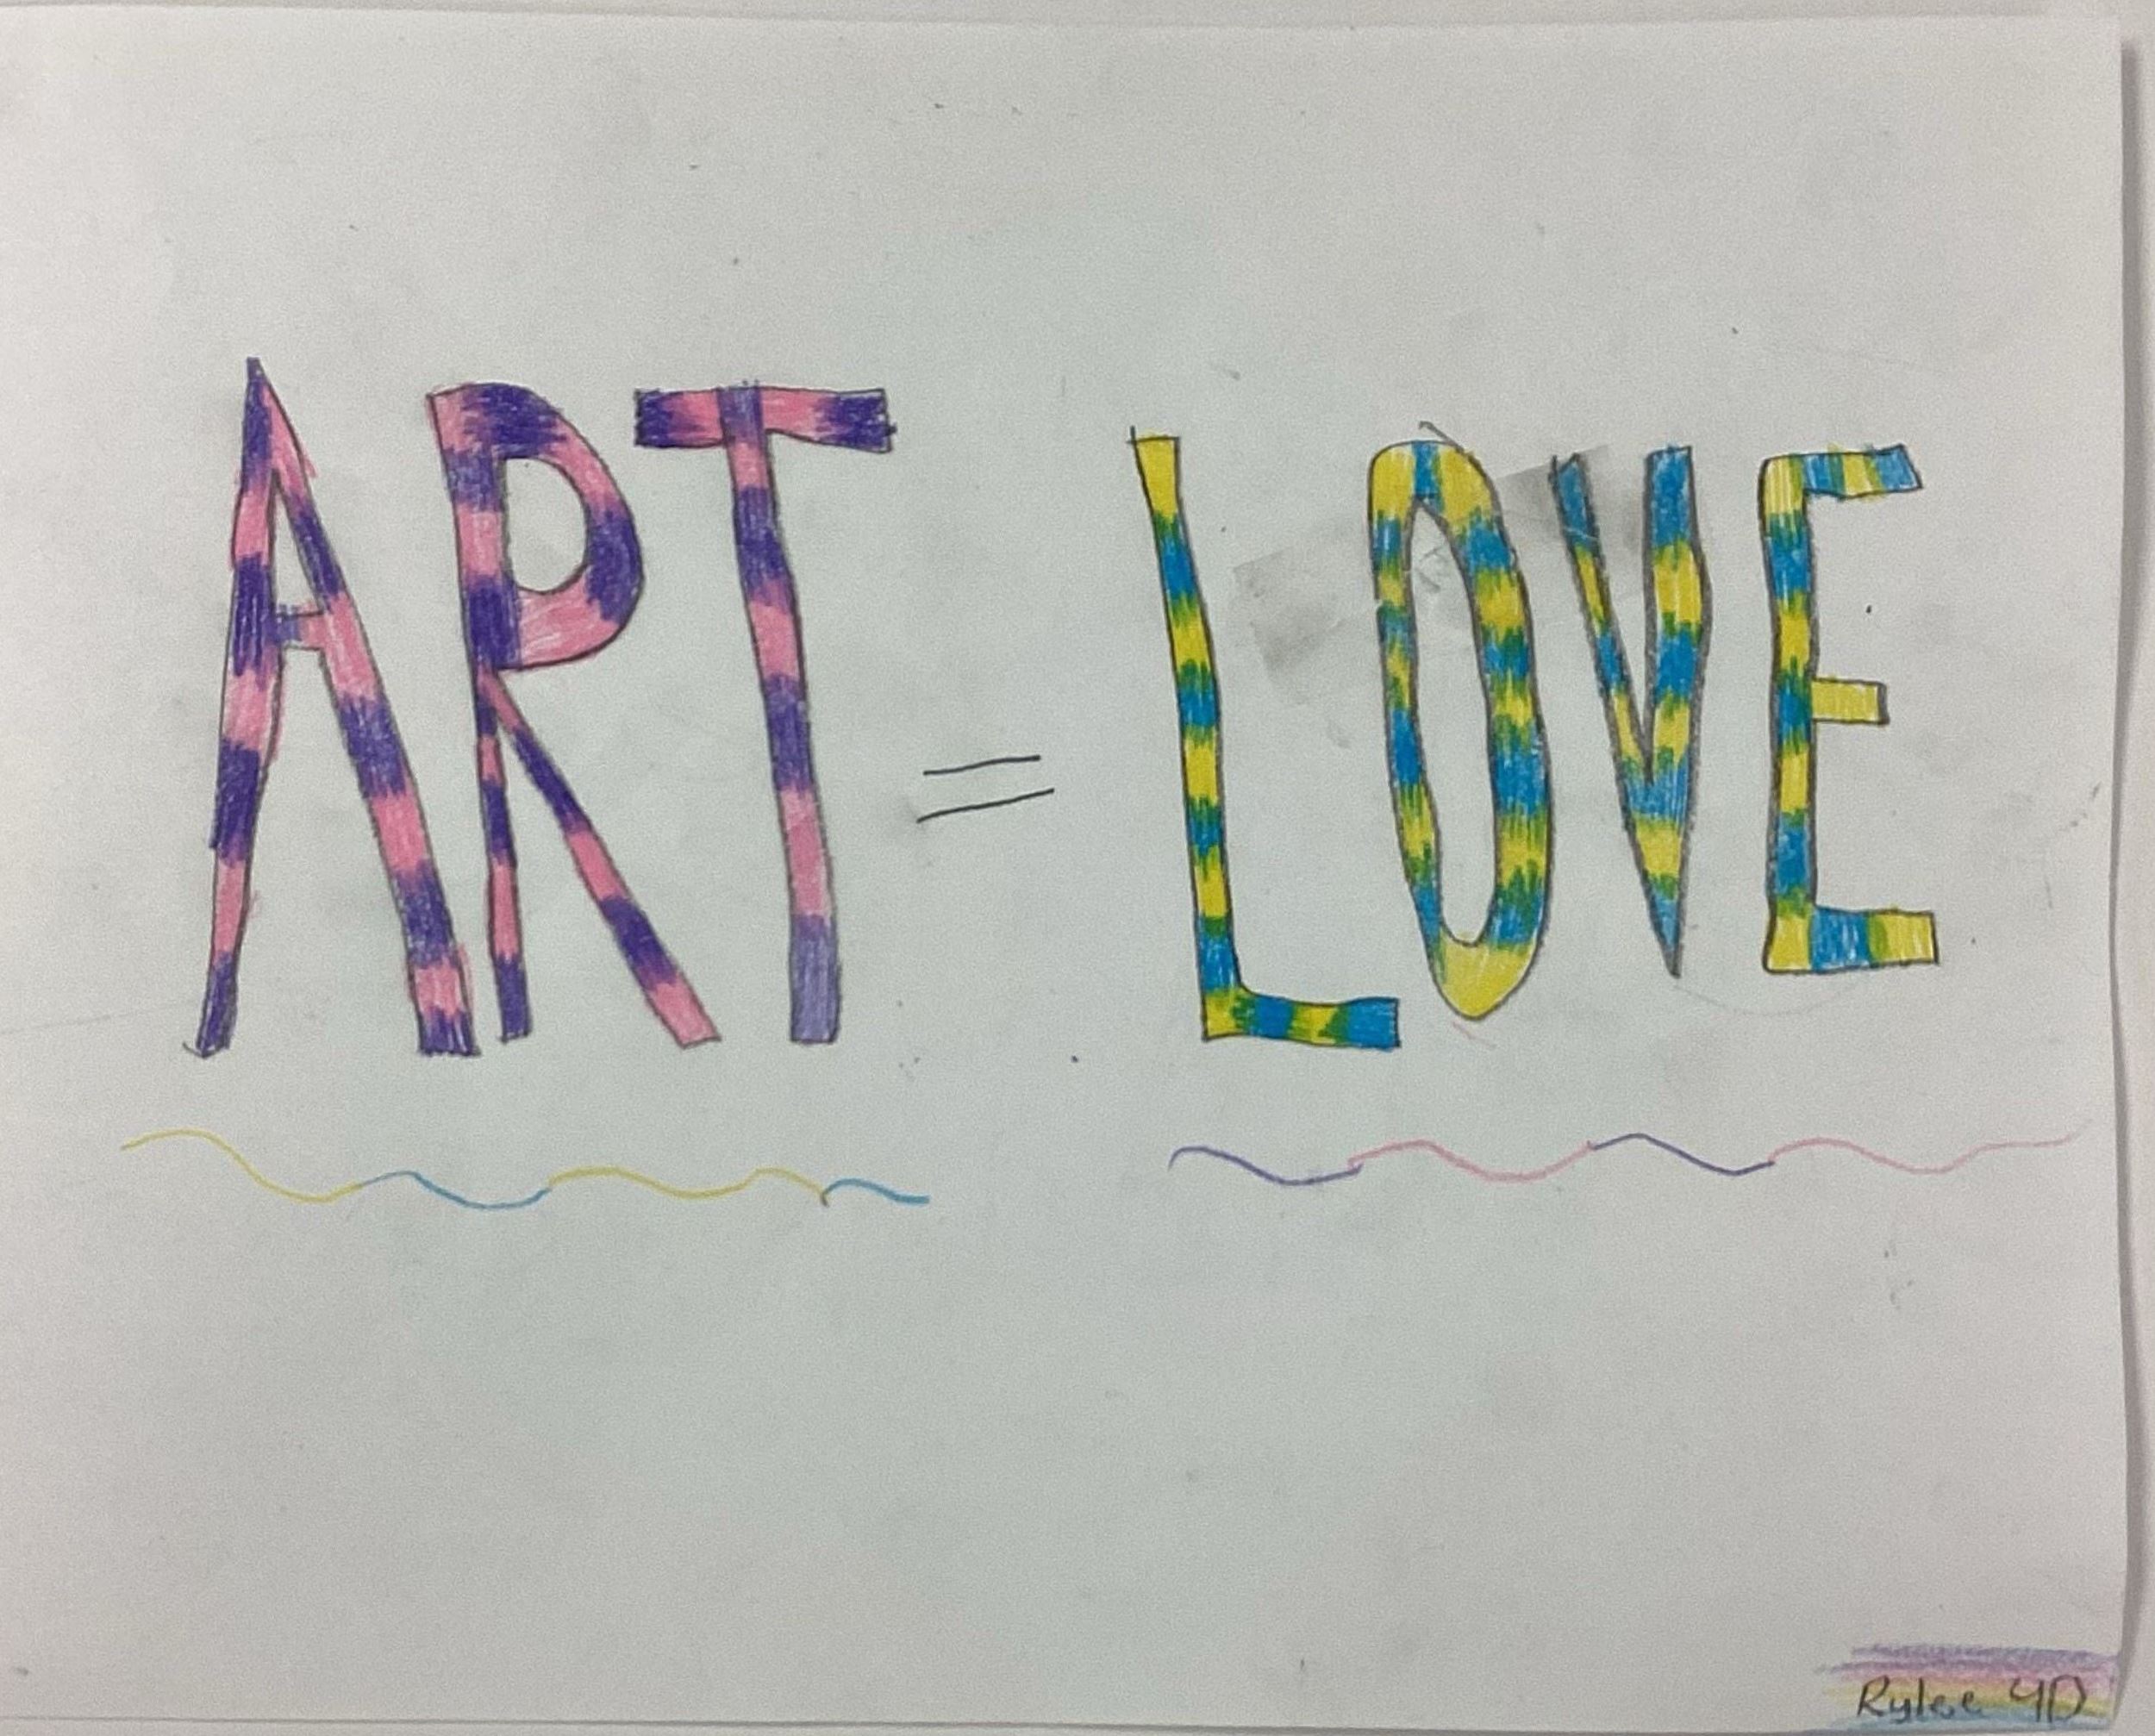 ART = LOVE
Rylee 4D